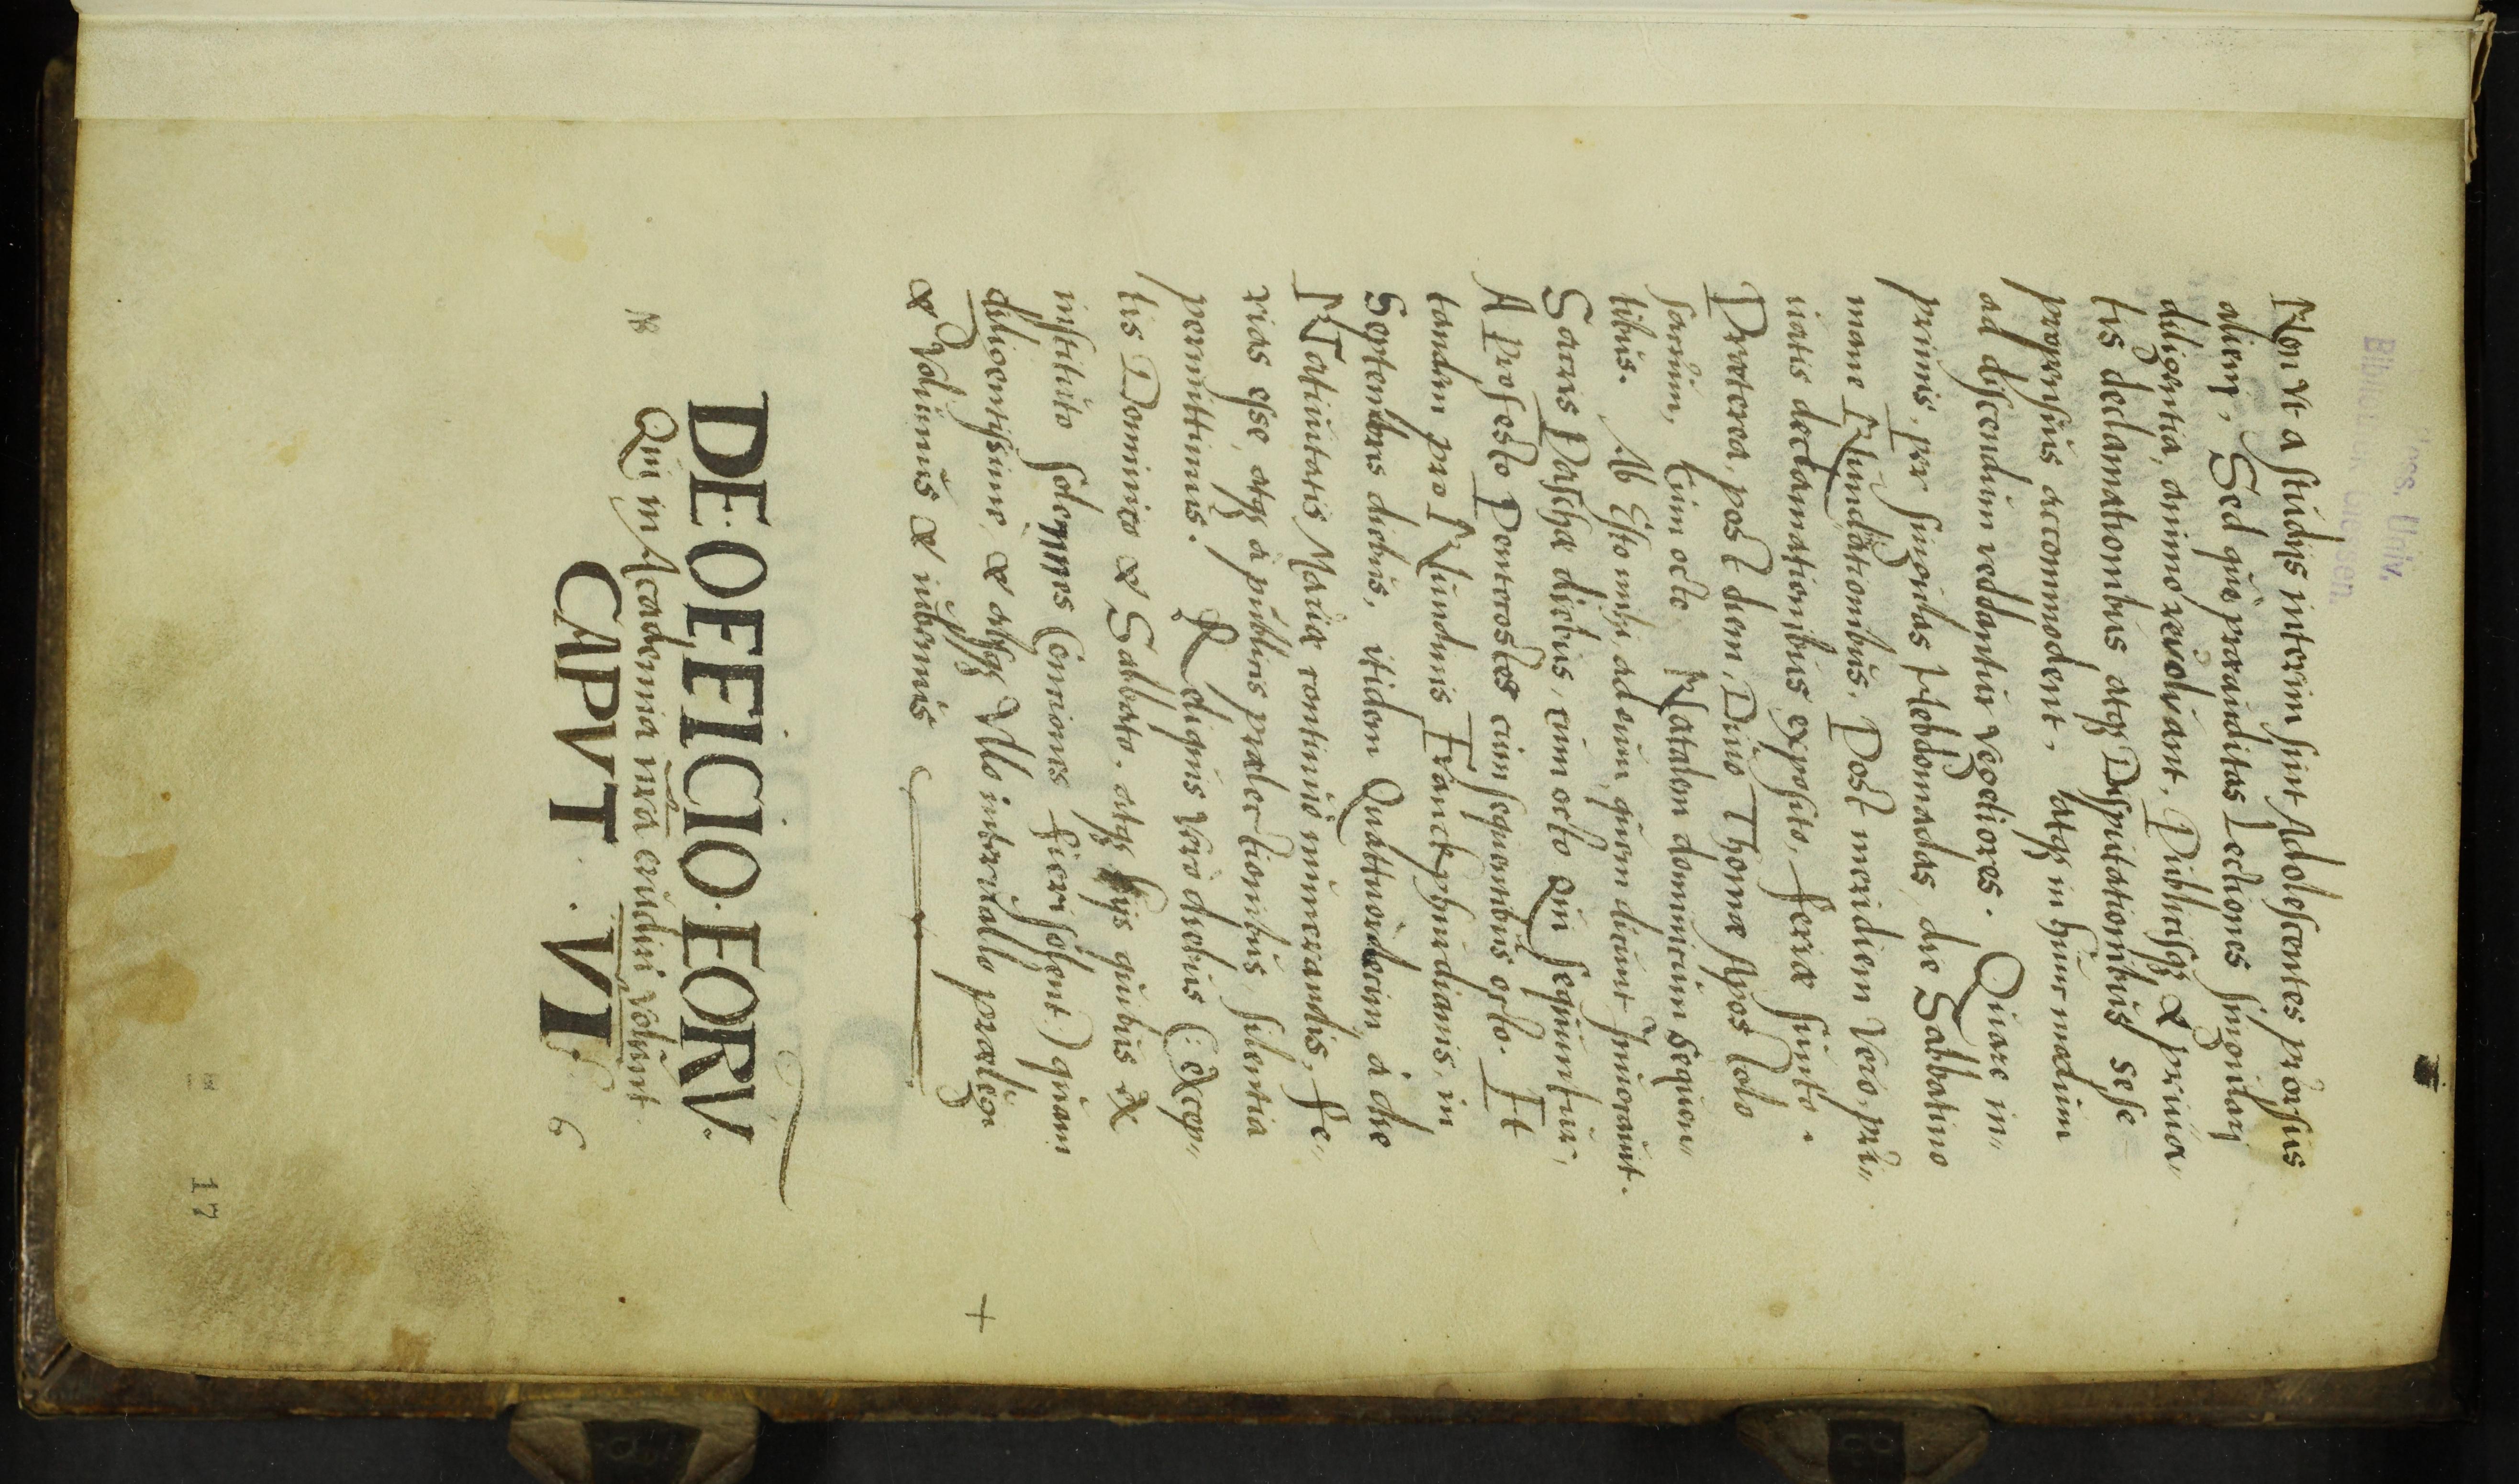 Hess. Univ.
Bibliothek Giessen.
Non vt a studijs interim sint Adolescentes prorsus
alienj, Sed quò praeauditas Lectiones singularj
diligentia, animo reuoluant, Publicisq3 & priua„
tis declamationibus atq3 Disputationibus sese
propensius accommodent, atq3 in hunc modum
ad discendum reddantur vegetiores. Quare in„
primis, per singulas Hebdomadas, die Sabbatino
mane Nundinationibus, Post meridiem vero, pri„
uatis declamationibus exposito, feriae sunto.
Praeterea, post diem, Diuo Thomae Apostolo
sacrum, cùm octo Natalem dominicum sequen„
tibus. Ab Esto mihi ad eum, quem dicunt Inuocauit.
Sacris Paschae diebus, cùm octo qui sequuntur,
A Profesto Pentecostes cùm sequentibus octo. Et
tandem pro Nundinis Franckphurdianis, in
Septembris diebus, itidem Quattuordecim, à die
Natiuitatis Mariae continuò numerandis, fe„
rias esse, atq3 à publicis praelectionibus silentia
permittimus. Reliquis verò diebus (: excep„
tis Dominico & Sabbato, atq3 hijs quibus ex
instituto solennes Conciones fieri solent :) quàm
diligentissime, & absq3 vllo interuallo praelegi
& volumus & iubemus
+
DE·OFFICIO·EORV̅·
Qui in Academia nr̅a erudiri volunt
CAPVT · VI
6
17